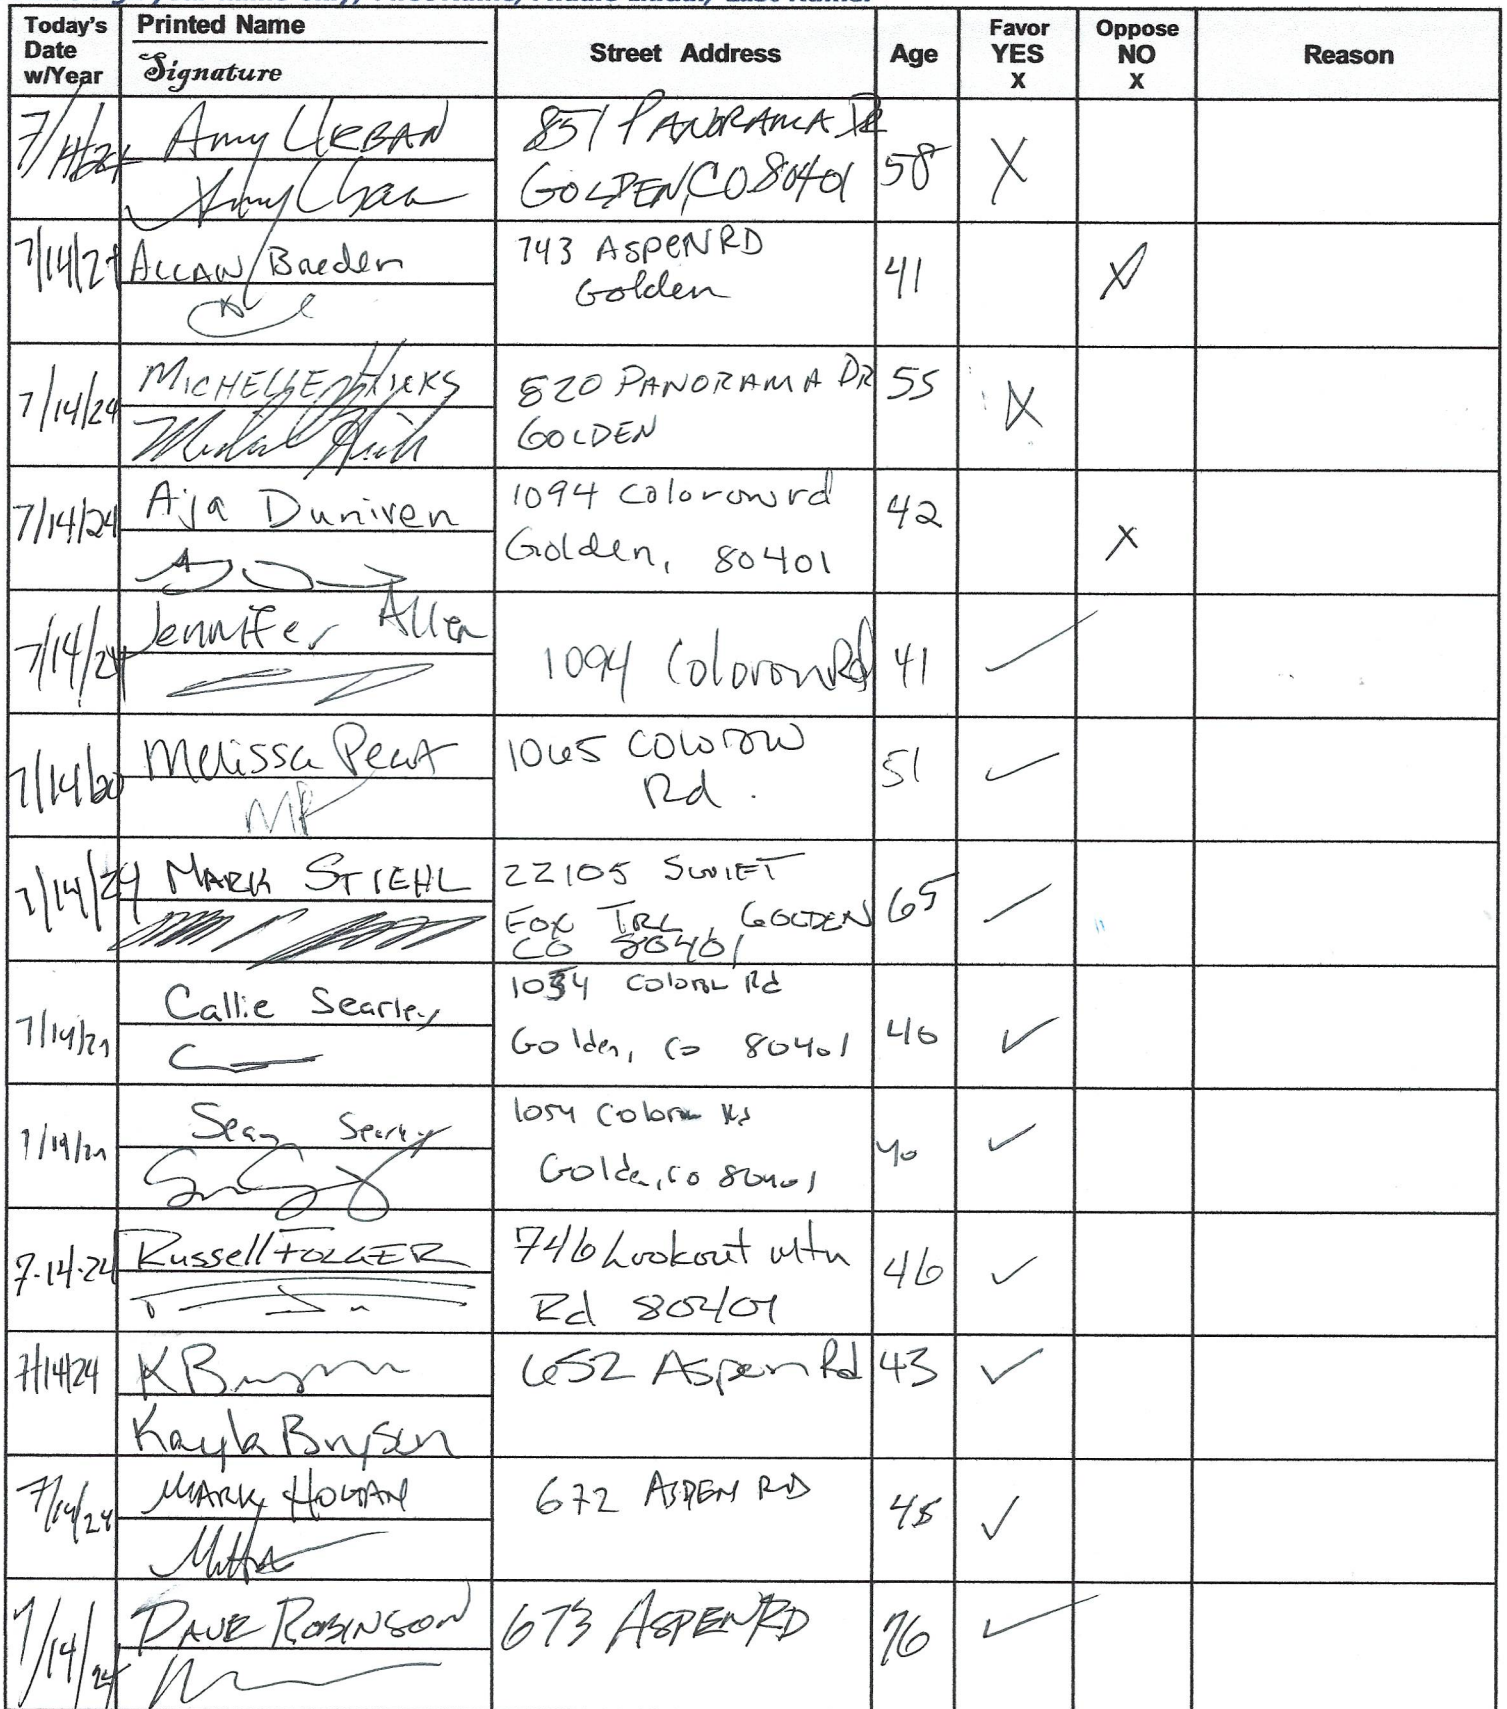 Today's Date w/Year Printed Name Signature Street Address Age Favor YES X Oppose NO X Reason
Amy URBAN 851 PANORAMA DR 58 X
GOLDEN, CO 80401
7/14/24 ALLAN Breden 743 ASPEN RD 41 X
Golden
7/14/24 MICHELLE HICKS 820 PANORAMA DR 55 X
GOLDEN
7/14/24 Aja Duniven 1094 Colorow rd 42 X
Golden, 80401
7/14/24 Jennifer Allen 1094 Colorow Rd 41 ✓
7/14/20 Melissa Peat 1065 Colorow 51 ✓
Rd.
MP
7/14/24 MARK STIEHL 22105 SWIFT 65 ✓
FOX TRL, GOLDEN
CO 80401
Callie Searley 1054 Rd 40 ✓
Golden, CO 80401
Sean Searley 1054 40 ✓
Golden, CO 80401
7-14-24 Russell FOLGER 746 Lookout Mtn 46 ✓
Rd 80401
7/14/24 652 Aspen Rd 43 ✓
Kayla Brysen
7/14/24 MARK HOLTAN 672 ASPEN RD 45 ✓
7/14/24 DAVE ROBINSON 673 ASPEN RD 76 ✓